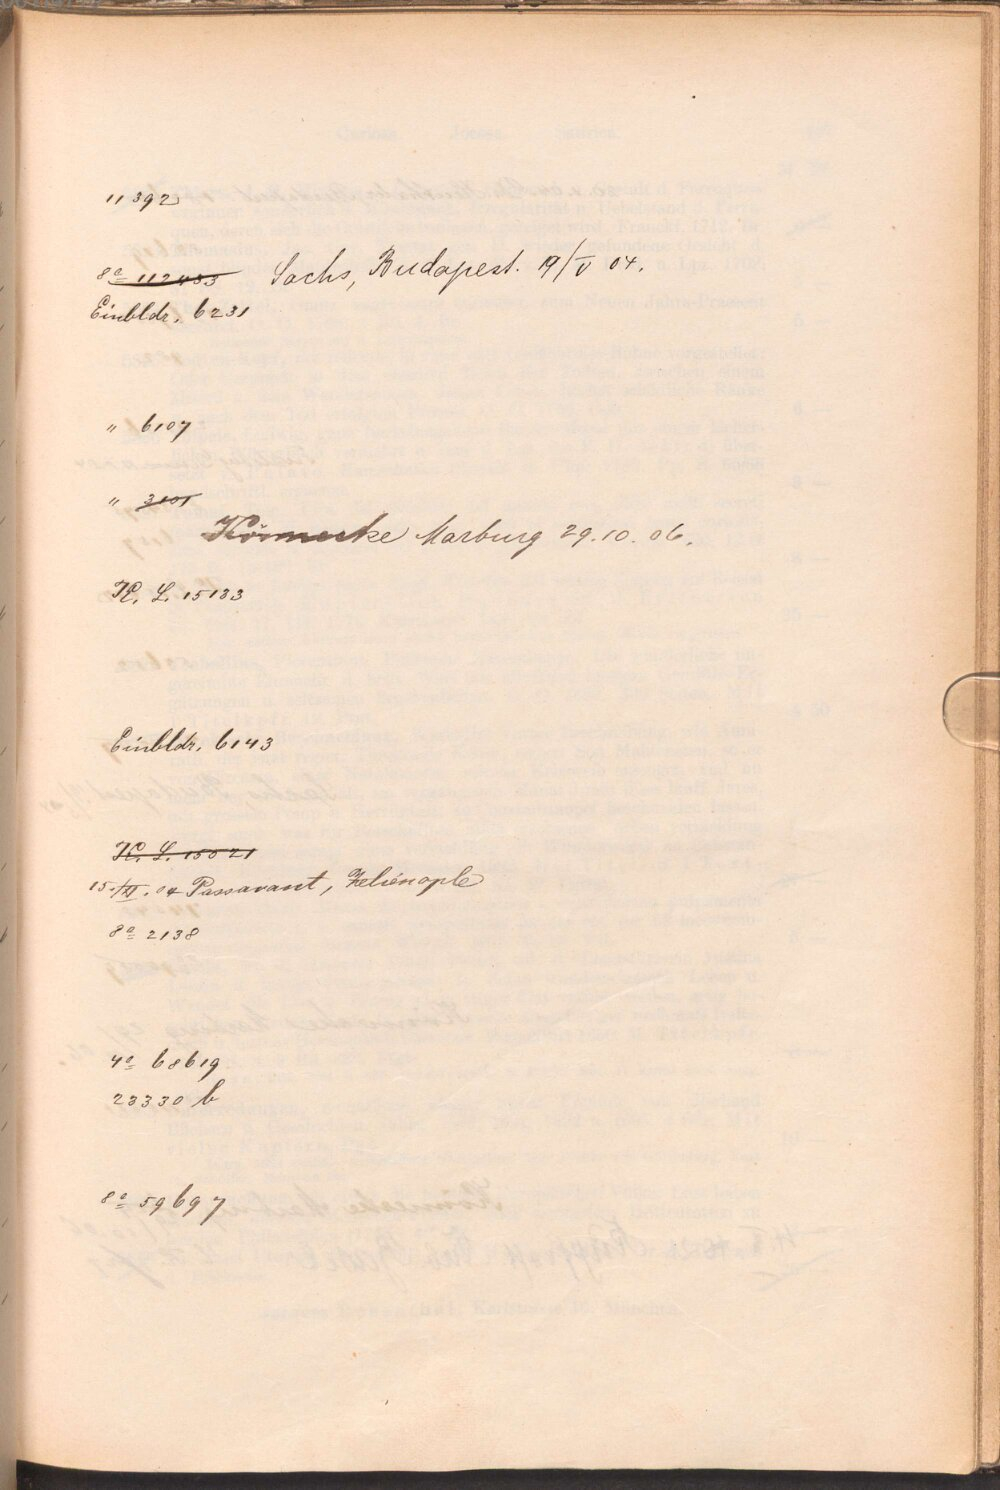 11392
8º 112433 Sachs, Budapest. 19/V 04.
Einbldr. 6231
" 6107
" 3101
Körnecke Marburg 29.10.06.
K. L. 15133
Einbldr. 6143
K. L. 15021
15./XI.04 Passavant, Zelienople
8º 2138
4º 68619
23330 b
8º 59697